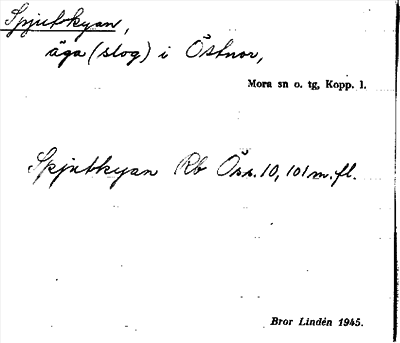 Spjutkyan,
äga (slog) i Östnor,
Mora sn o. tg, Kopp. l.
Spjutkyan Rb Ösn. 10, 101 m. fl.
Bror Lindén 1945.